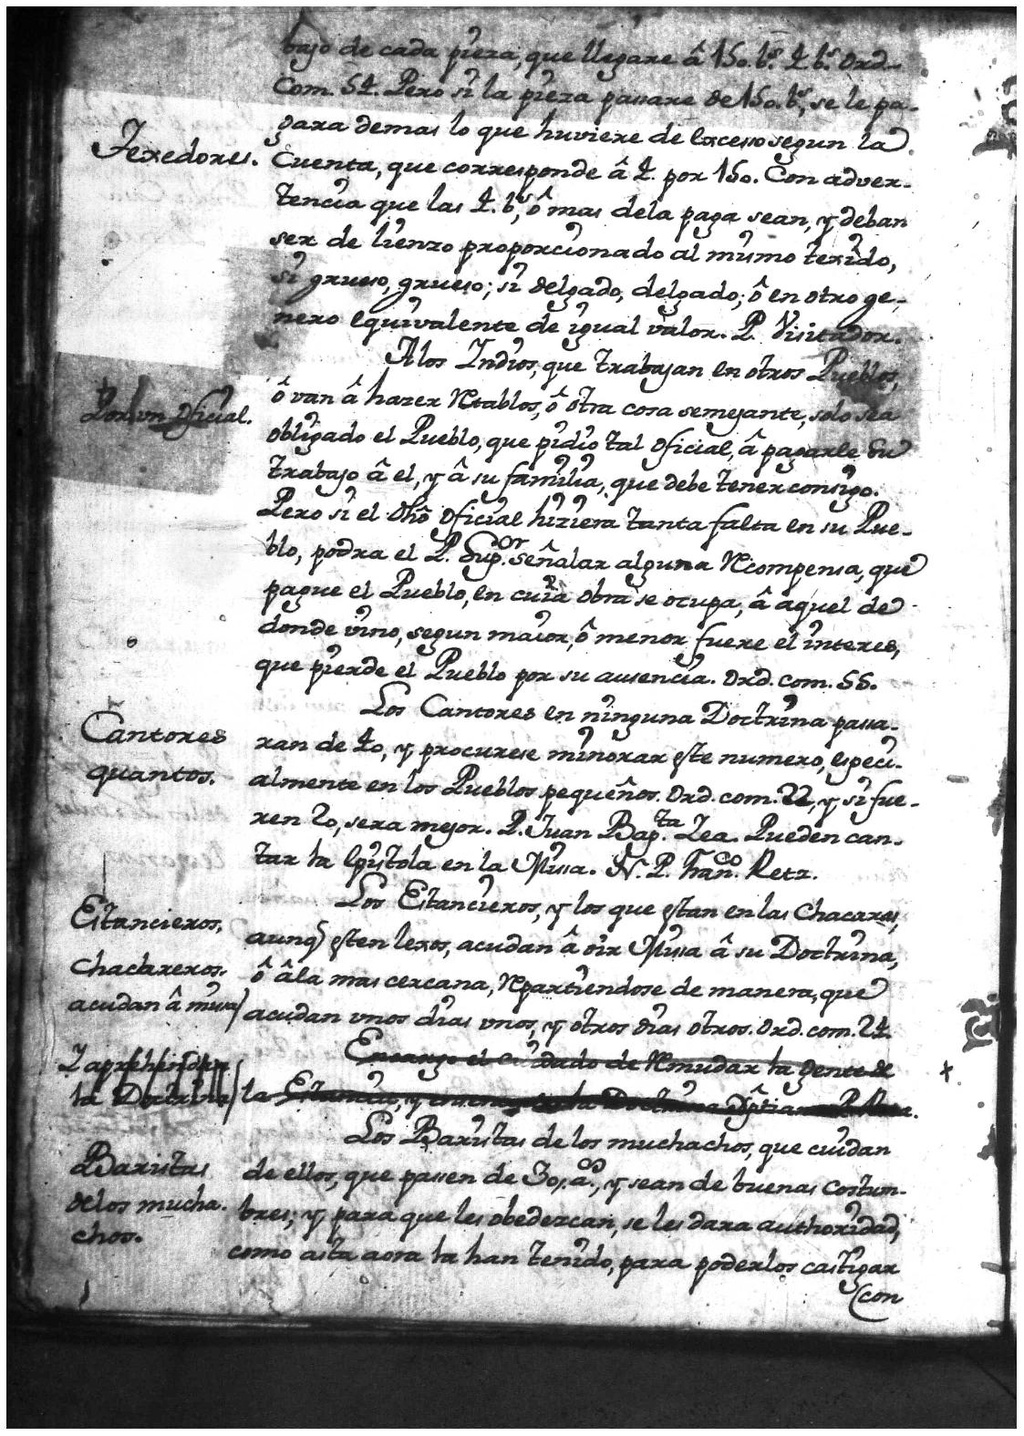 bajo de cada pieza, que llegare â 150. bs. 4. bs. Ord.
Com. 54. Pero si la pieza pasare de 150. bs, se le pa-
gara demas lo que huviere de excesso segun la
Texedores.
Cuenta, que corresponde â 4. por 150. Con adver-
tencia que las 4. bs, ô mas dela paga sean, y deban
ser de lienzo proporcionado al mismo texido,
si grueso, grueso; si delgado, delgado; ô en otro ge-
nero equivalente de igual valor. P. Visitador.
Alos Indios, que trabajan en otros Pueblos,
Por un Oficial.
ô van â hazer Retablos, ô otra cosa semejante, solo sea
obligado el Pueblo, que pidio tal Oficial, â pagarle su
trabajo â el, y â su familia, que debe tener consigo.
Pero si el dho Oficial hiziera tanta falta en su Pue-
blo, podra el P. Sup.or señalar alguna Recompensa, que
pague el Pueblo, en cuia obra se ocupa, â aquel de
donde vino, segun maior, ô menor fuere el interes,
que pierde el Pueblo por su ausencia. Ord. com. 55.
Los Cantores en ninguna Doctrina passa-
Cantores
quantos.
ran de 40, y procurese minorar este numero, especi-
almente en los Pueblos pequeños. Ord. com. 22, y si fue-
ren 20, sera mejor. P. Juan Bap.ta Zea. Pueden can-
tar la Epistola en la Missa. N. P. Fran.co Retz.
Los Estancieros, y los que estan en las Chacaras,
Estancieros,
chacareros.
acudan â missa
aunq esten lexos, acudan â oir Missa â su Doctrina,
ô âla mas cercana, Repartiendose de manera, que
acudan unos dias unos, y otros dias otros. Ord. com. 24.
Encargo el cuidado de Remudar la gente de
Y aprehender
la Doctrina
la Estancia, y la Doctrina
Los Baristas de los muchachos, que cuidan
Baristas
delos mucha-
chos.
de ellos, que passen de 30. a.os, y sean de buenas costum-
bres; y para que les obedezcan, se les dara authoridad,
como asta aora la han tenido, para poderlos castigar
con